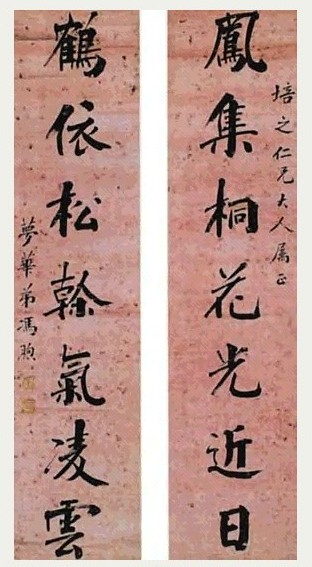 鳳集桐花光近日
培之仁兄大人属正
鶴依松榦氣凌雲
夢華弟馮煦